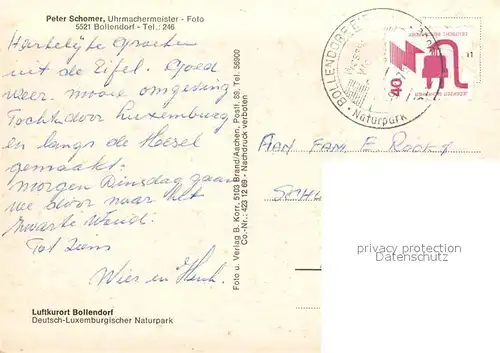 Peter Schomer, Uhrmachermeister - Foto
5521 Bollendorf - Tel.: 246
Hartelijke groeten
uit de Eifel. Goed
weer. mooie omgeving
Tocht door Luxemburg
en langs de Moesel
gemaakt.
morgen Dinsdag gaan
we door naar het
zwarte Woud.
Tot ziens
Wies en Henk.
Luftkurort Bollendorf
Deutsch-Luxemburgischer Naturpark
Foto u. Verlag B. Korr, 5103 Brand/Aachen, Postf. 89, Tel. 56900
Co.-Nr.: 423 12 69 - Nachdruck verboten
BOLLENDORF
Naturpark
40
AAN FAM. E
privacy protection
Datenschutz